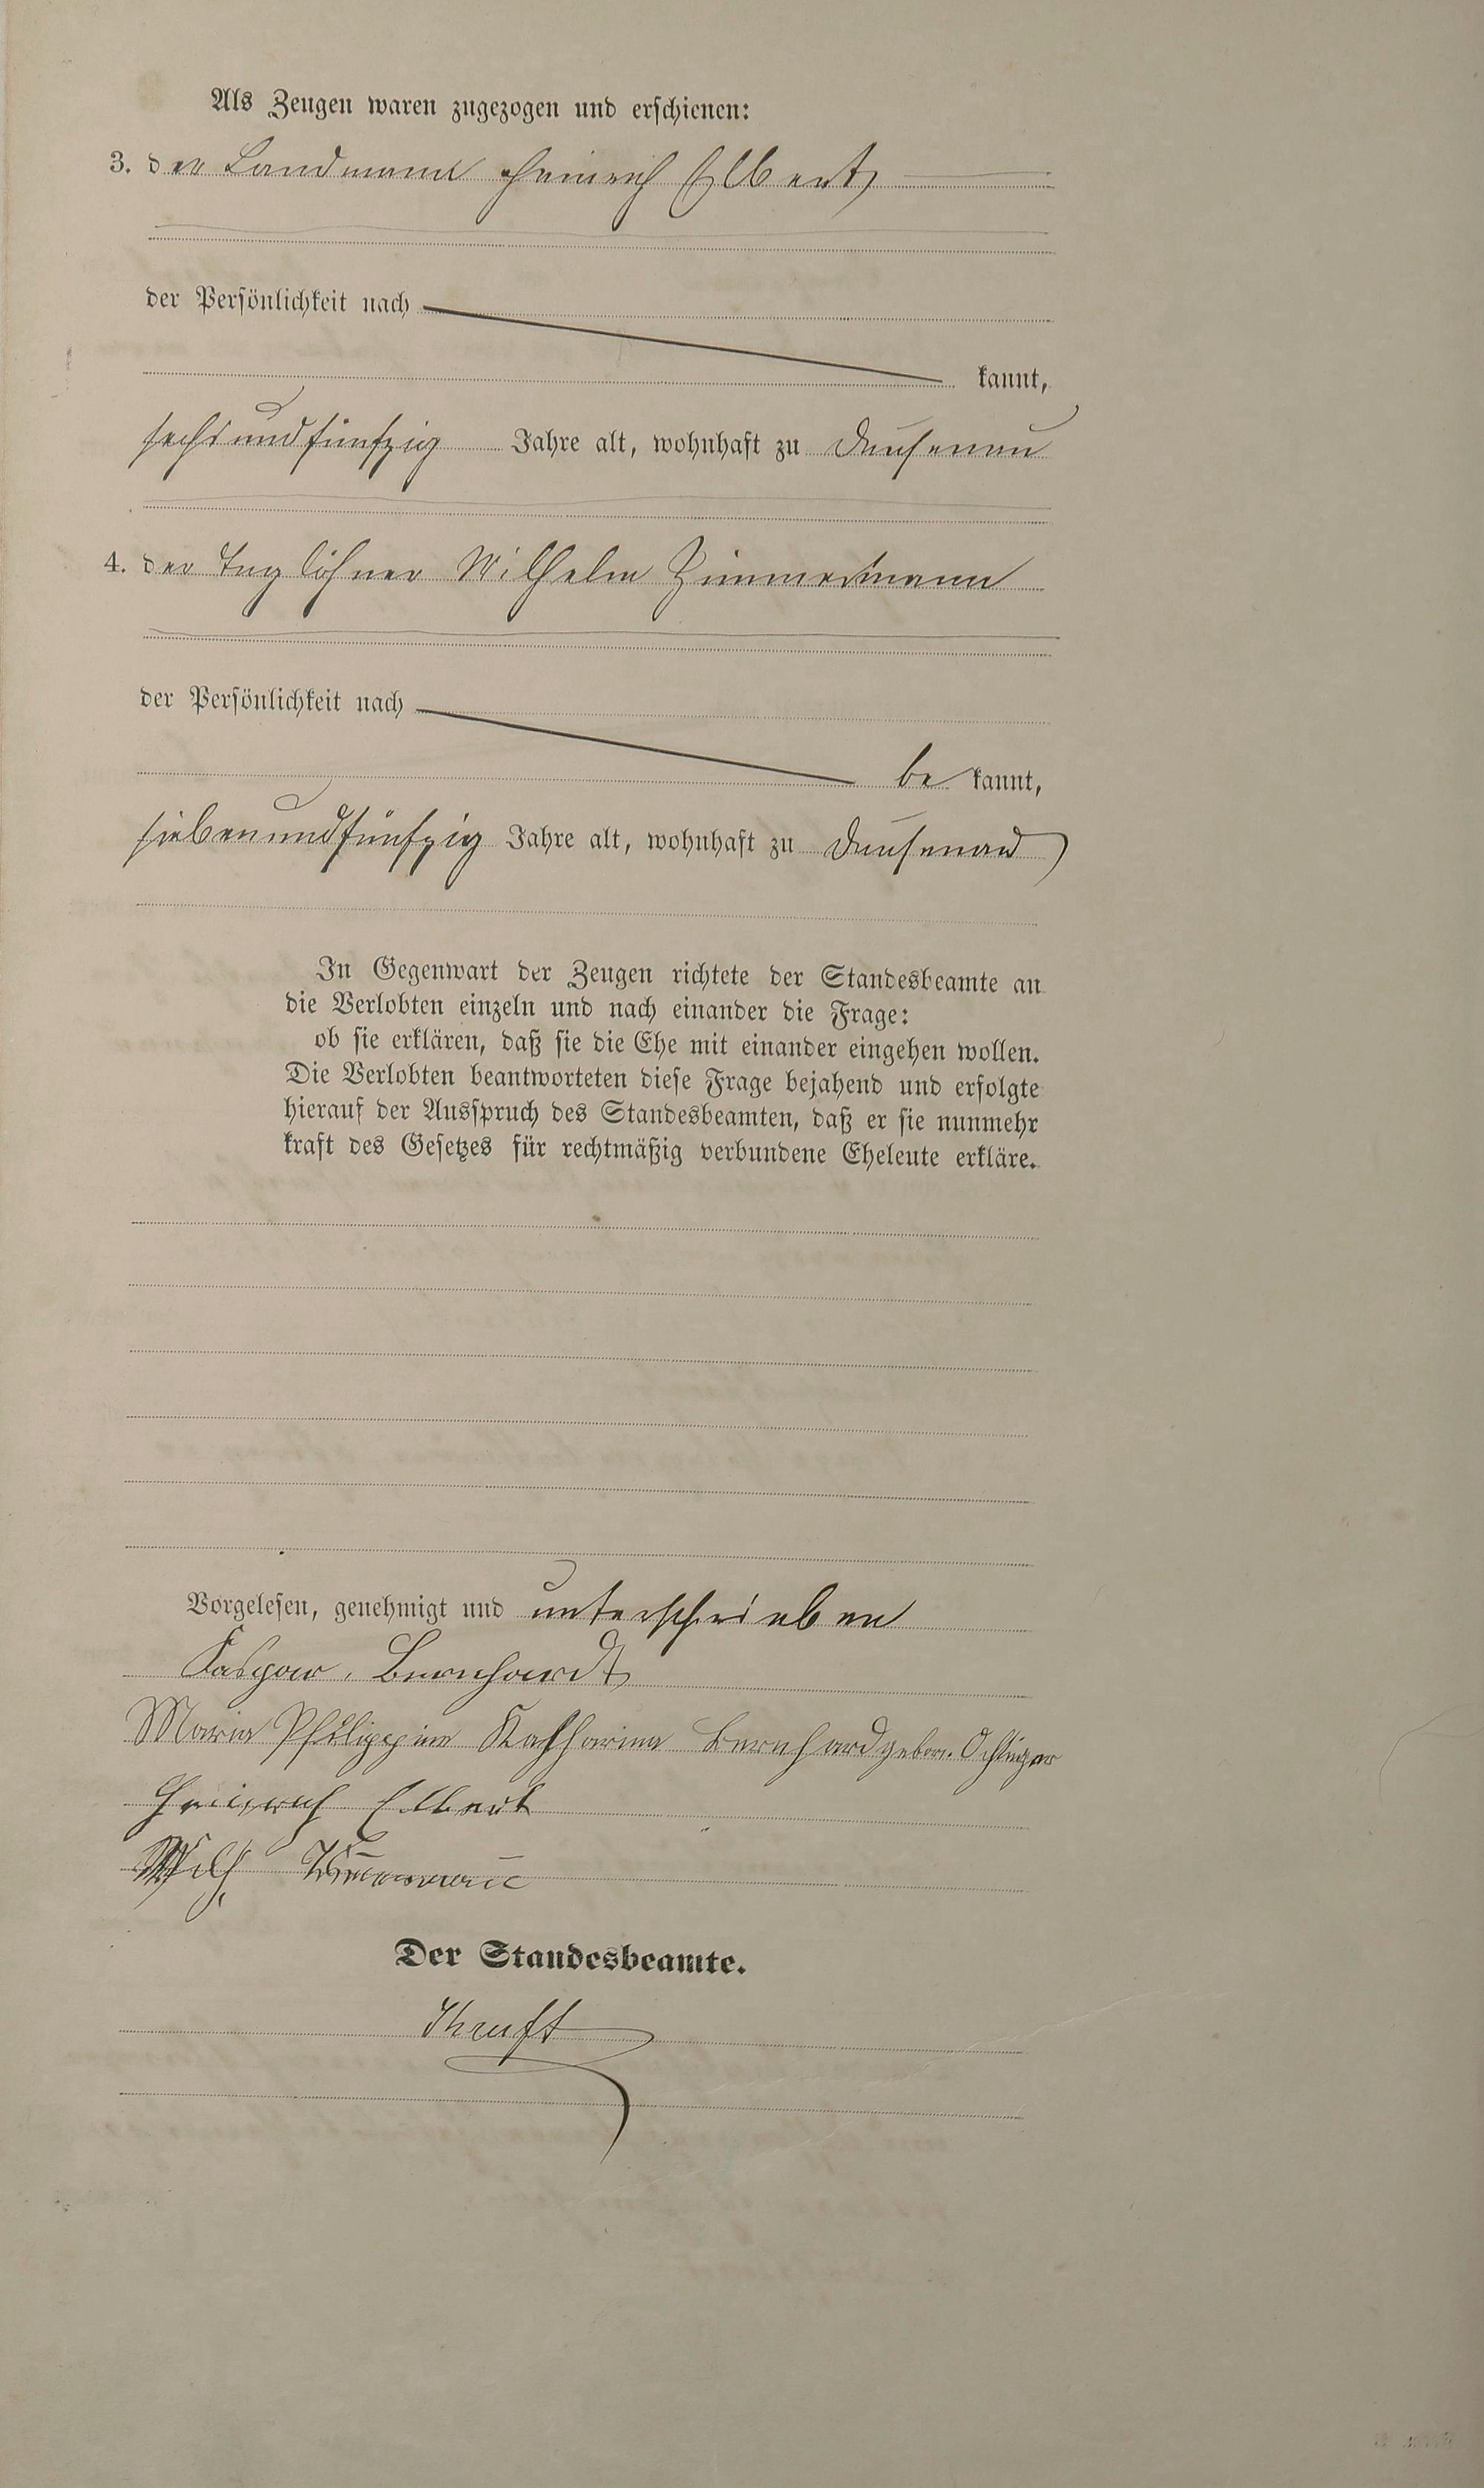 Als Zeugen waren zugezogen und erschienen:
3. der Landmann Heinrich Elbert
der Persönlichkeit nach
kannt,
sechsundfünfzig Jahre alt, wohnhaft zu Dausenau
4. der Taglöhner Wilhelm Zimmermann
der Persönlichkeit nach
be kannt,
siebenundfünfzig Jahre alt, wohnhaft zu Dausenau
In Gegenwart der Zeugen richtete der Standesbeamte an
die Verlobten einzeln und nach einander die Frage:
ob sie erklären, daß sie die Ehe mit einander eingehen wollen.
Die Verlobten beantworteten diese Frage bejahend und erfolgte
hierauf der Ausspruch des Standesbeamten, daß er sie nunmehr
kraft des Gesetzes für rechtmäßig verbundene Eheleute erkläre.
Vorgelesen, genehmigt und unterschrieben
Kaspar Bernhardt
Maria Philippine Katharina Bernhard geborn.
Heinrich Elbert
Wilh Zimmermann
Der Standesbeamte.